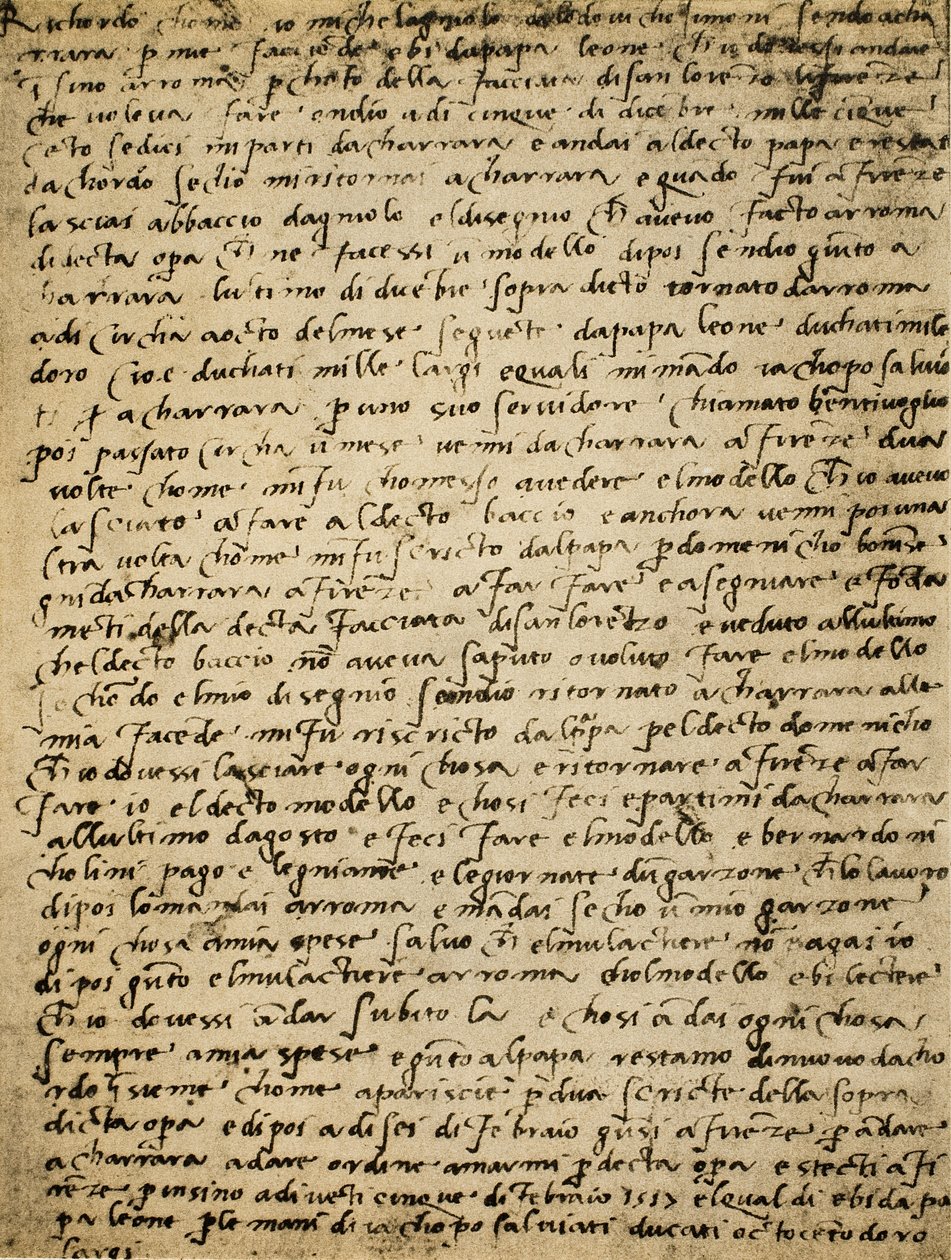 Richordo chome io michelagniolo dalodovicho simoni sendo a cha
rrara p mie faccēde ebi dapapa leone ch'io dovessi andare
īsino arroma p chōto della facciata disan lorenzo difirenze
che voleva fare ondio adi cinque di dicēbre mille cinque
cēto sedici mi parti da charrara e andai aldecto papa e restai
dachordo sechō mi ritornai a charrara e quādo fui a firēze
lasciai abbaccio dagniolo eldisegnio ch'avevo facto arroma
didecta opa ch ne facessi ū modello dipoi sendio giūto a
charrara lultimo di dicēbre sopra dicto tornato darroma
adi circha aocto delmese seguēte dapapa leone duchati mile
doro cioe duchati mille largi e quali mi mādo iachopo salvia
ti a charrara p uno suo servidore chiamato bentivoglio
poi passato circha ū mese venni da charrara a firēze dua
volte chome mi fu chomesso a vedere elmodello ch'io avevo
lasciato a fare aldecto baccio e anchora venni poi una
ltra volta chome mi fu scricto dalpapa p domenicho bonīse
gni da charrara a firēze a far fare e a segniare e fōda
mēti della decta facciata di san lorēzo e veduto allultimo
cheldecto baccio nō aveva saputo o voluto fare elmodello
sechōdo elmio disegnio sendio ritornato a charrara alle
mia facēde mi fu riscricto dalpāpa peldecto domenicho
ch'io dovessi lasciare ogni chosa e ritornare a firēze a far
fare io eldecto modello e chosi feci e partimi da charrara
allultimo dagosto e feci fare elmodello e bernardo ni
cholini pago e legniami e le giornate dūgarzone ch lo lavoro
dipoi lo mandai arroma e mādai secho ū mio garzone
ogni chosa a mia spese salvo ch elmulactiere nō pagai io
dipoi giūto elmulactiere arroma cholmodello ebi lectere
ch'io dovessi ādar subito la e chosi ādai ogni chosa
sempre a mia spese e giūto alpapa restamo dinuovo dacho
rdo īsieme chome apariscie p dua scricte della sopra
dicta opa e dipoi adi sei di febraio giūsi a firēze p ādare
a charrara a dare ordine a marmi p decta opa e stecti a fi
rēze p insino adi vēti cinque di febraio 1517 elqual di ebi da pa
pa leone p le mani di iachopo salviati ducati octocēto doro
largi